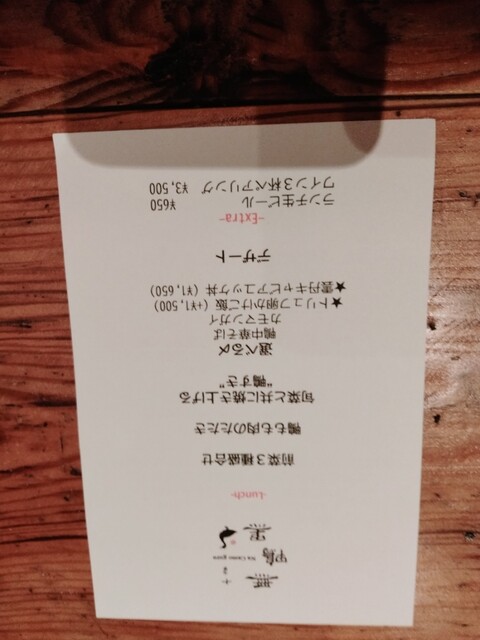 -Lunch-
前菜3種盛合せ
鴨もも肉のたたき
旬菜と共に焼き上げる
"鴨すき"
選べる〆
鴨中華そば
カモマンガイ
★トリュフ卵かけご飯 (+¥1,500)
★雲丹キャビアユッケ丼 (¥1,650)
デザート
-Extra-
ランチ生ビール ¥650
ワイン3杯ペアリング ¥3,500